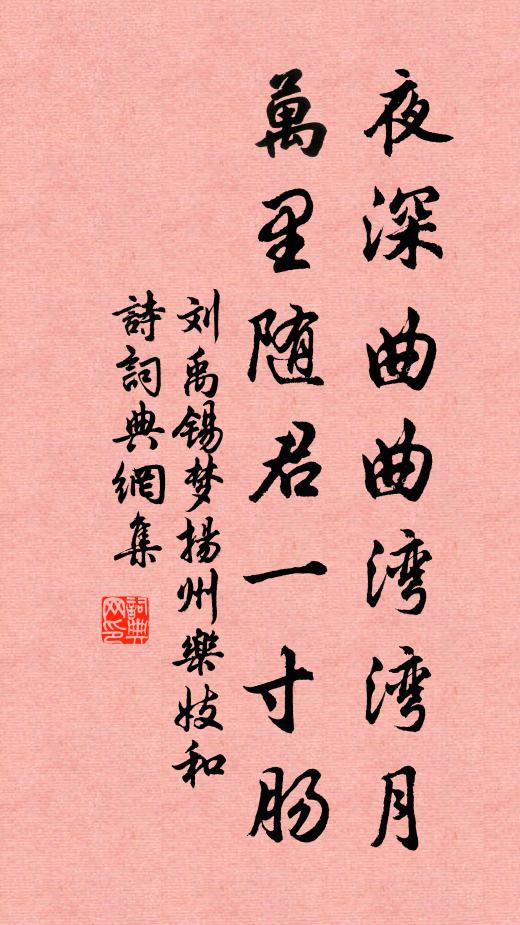 夜深曲曲湾湾月
萬里随君一寸肠
刘禹锡梦揚州樂妓和
詩詞典網集
詞典网印